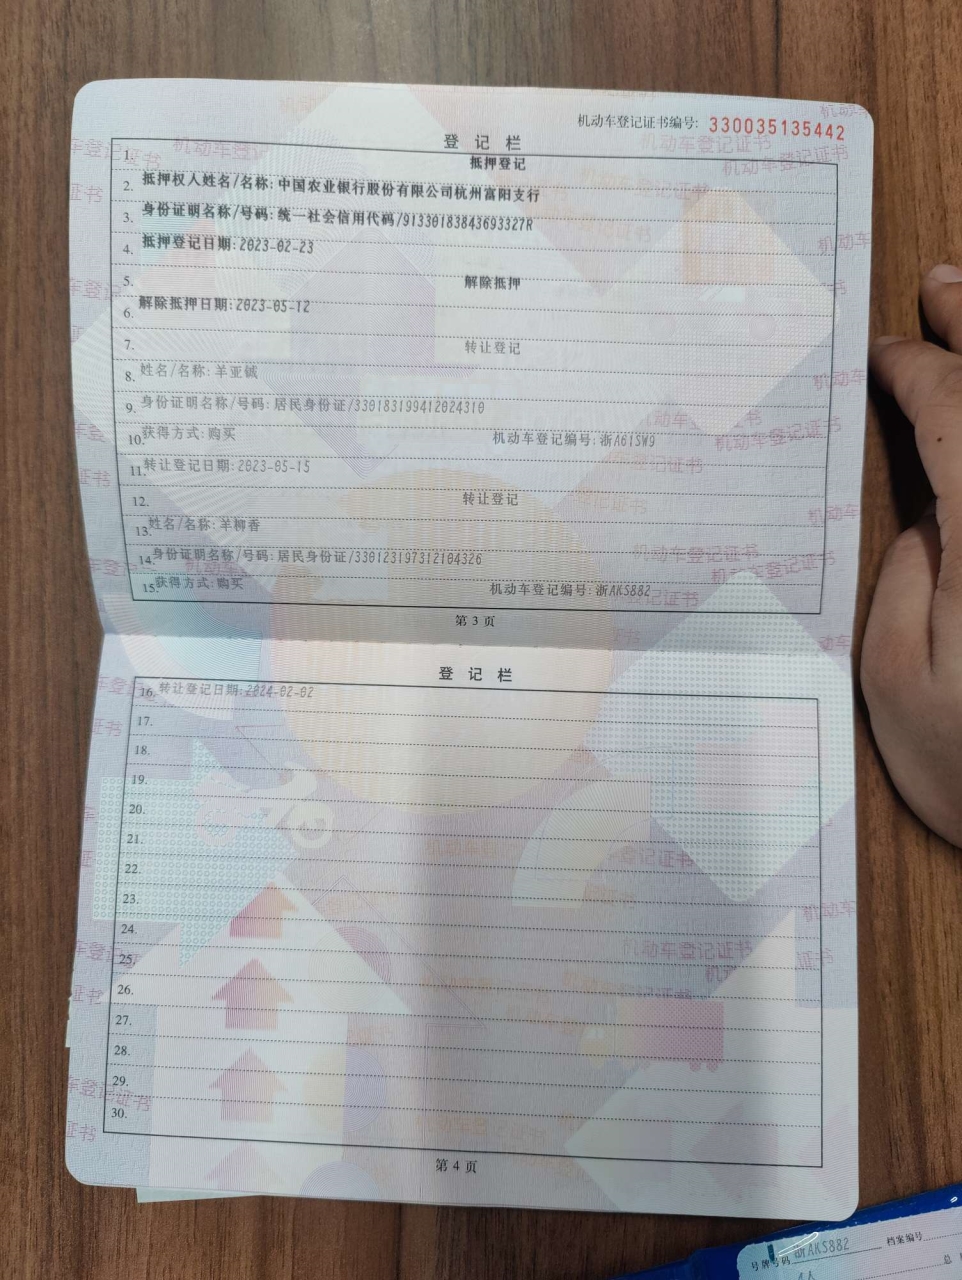 机动车登记证书编号: 330035135442
登记栏
1. 抵押登记
2. 抵押权人姓名/名称:中国农业银行股份有限公司杭州富阳支行
3. 身份证明名称/号码:统一社会信用代码/91330183843693327R
4. 抵押登记日期:2023-02-23
5. 解除抵押
6. 解除抵押日期:2023-05-12
7. 转让登记
8. 姓名/名称:羊亚铖
9. 身份证明名称/号码:居民身份证/330183199412024310
10. 获得方式:购买 机动车登记编号:浙A61SW9
11. 转让登记日期:2023-05-15
12. 转让登记
13. 姓名/名称:羊柳香
14. 身份证明名称/号码:居民身份证/330123197312104326
15. 获得方式:购买 机动车登记编号:浙AKS882
第 3 页
登记栏
16. 转让登记日期:2024-02-02
17.
18.
19.
20.
21.
22.
23.
24.
25.
26.
27.
28.
29.
30.
第 4 页
号牌号码 浙AKS882 档案编号
4人 总